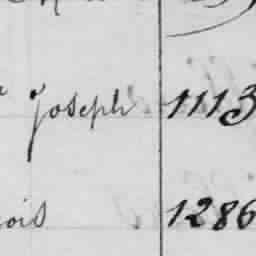 Joseph 1113
ois 1286